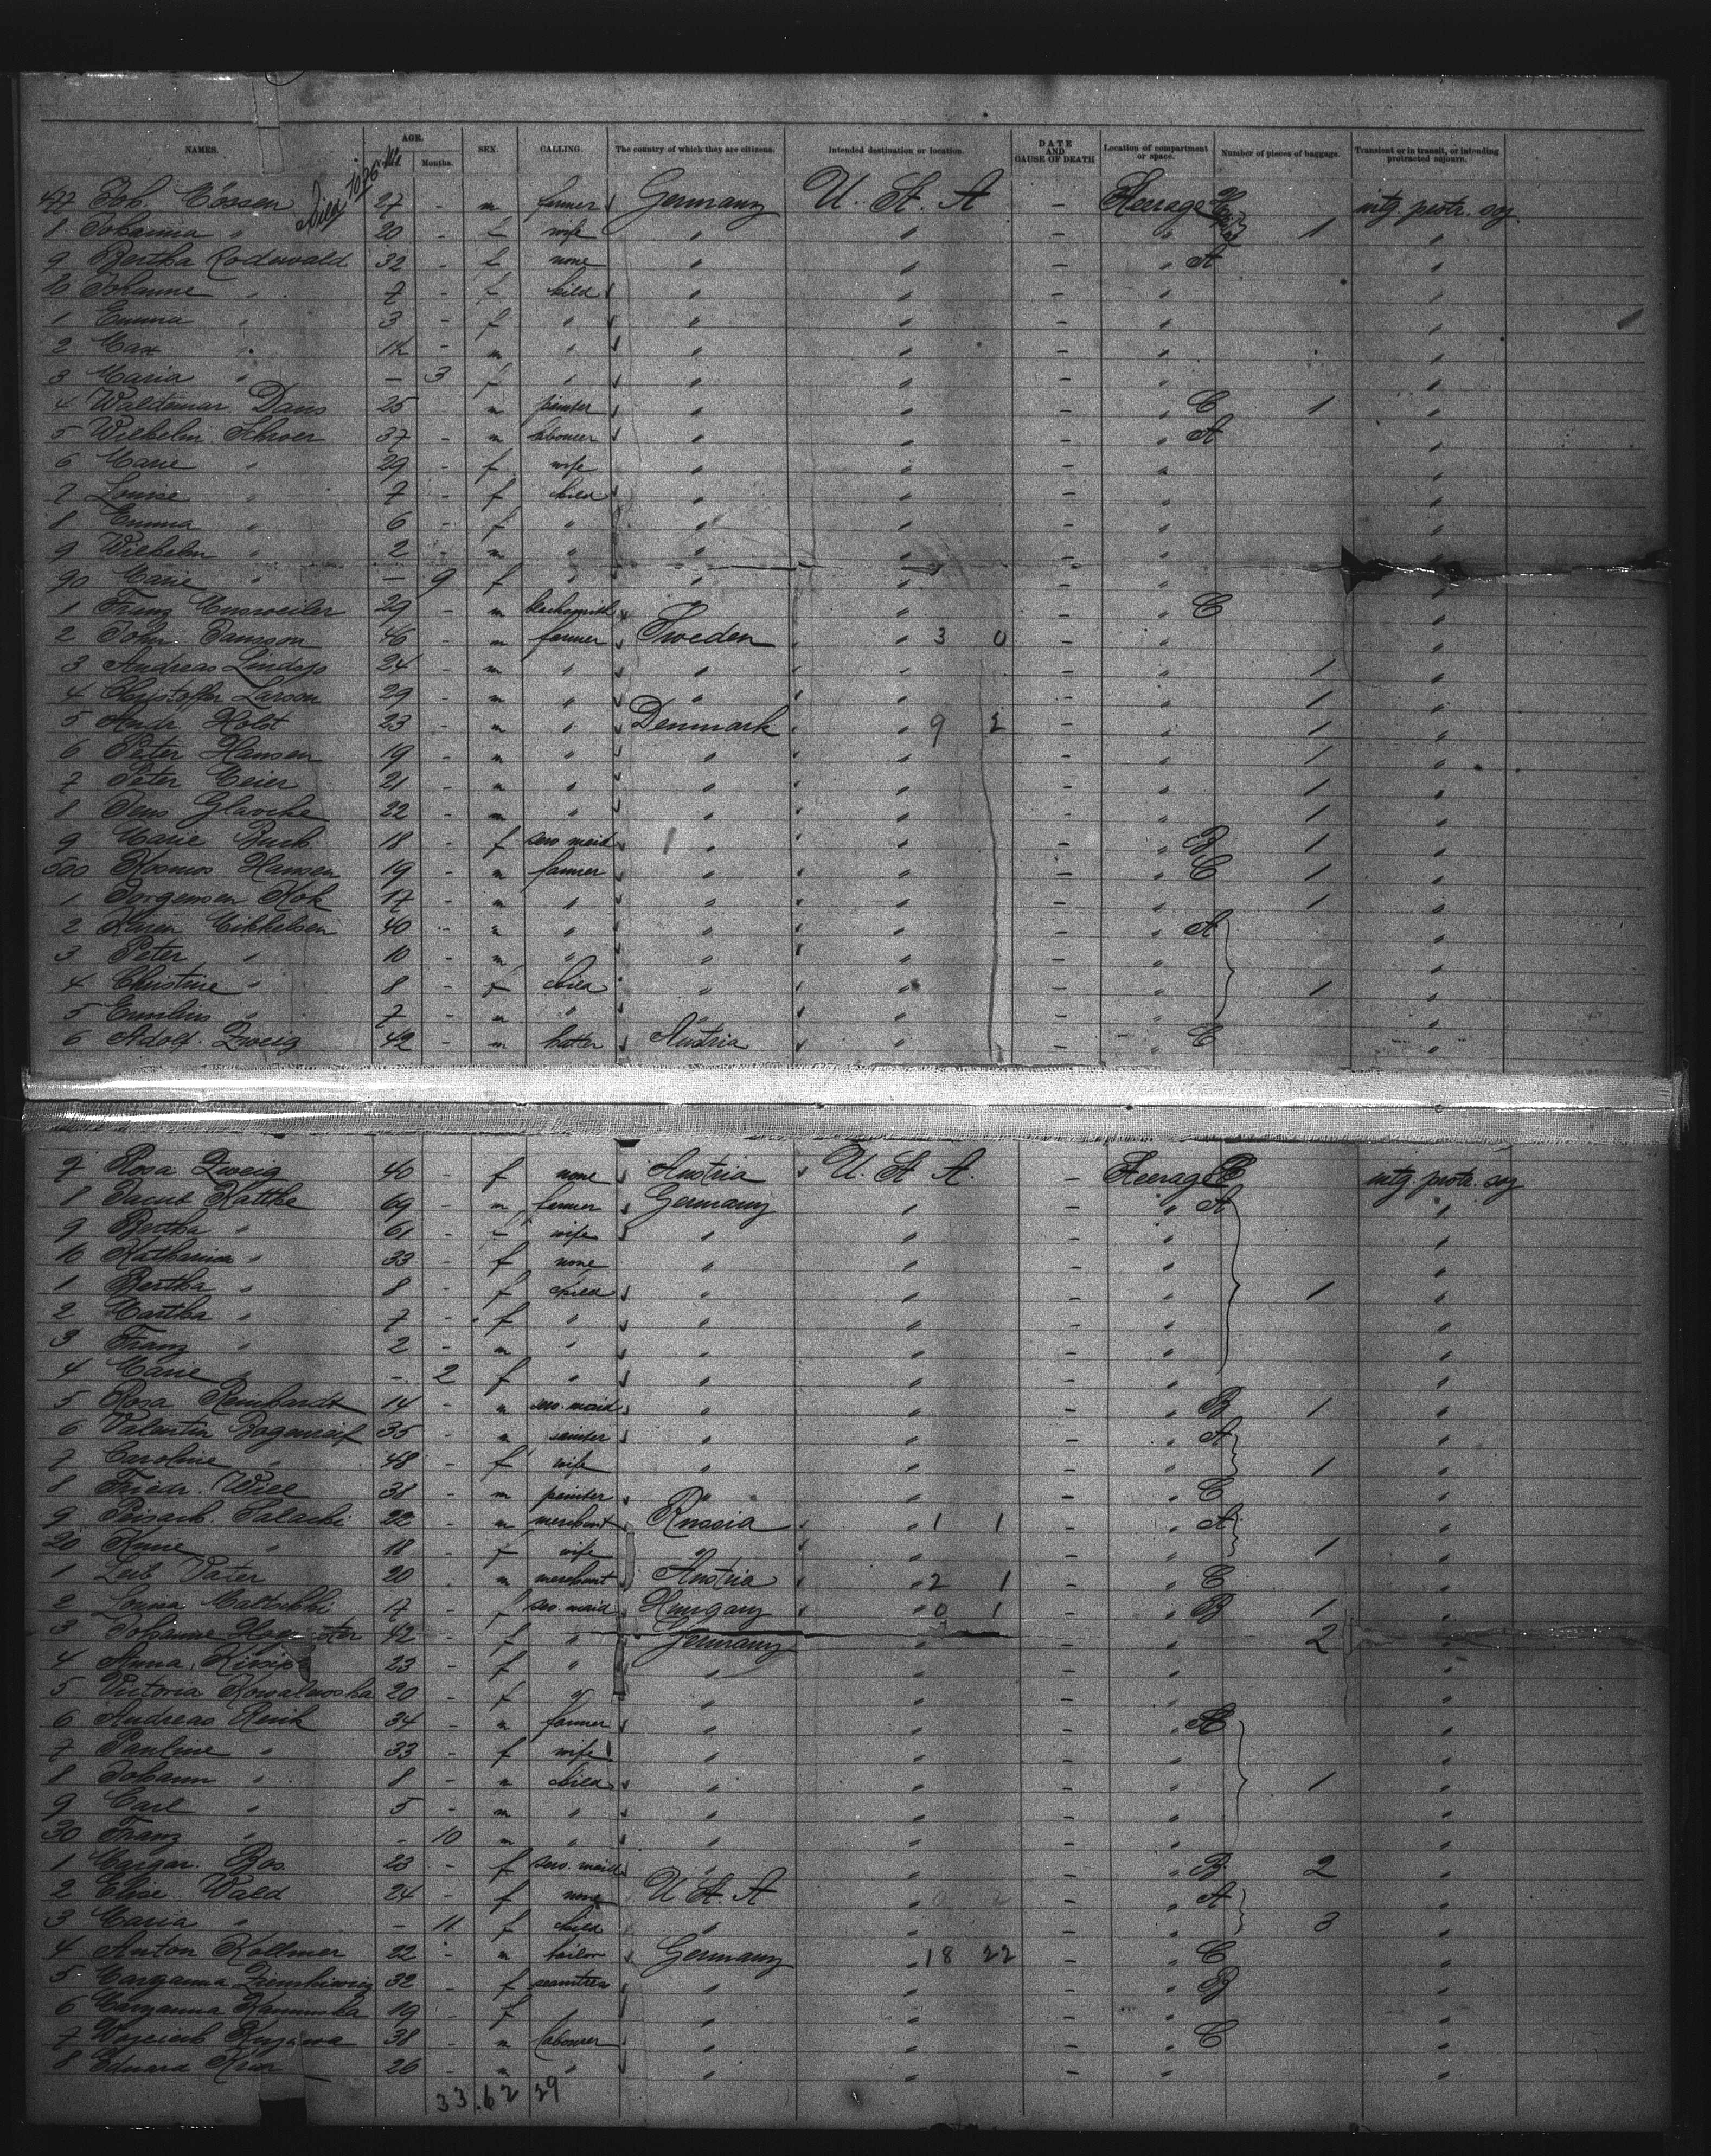 NAMES. AGE. Months. SEX. CALLING. The country of which they are citizens. Intended destination or location. DATE AND CAUSE OF DEATH Location of compartment or space. Number of pieces of baggage. Transient or in transit, or intending protracted sojourn.
477 Joh. Cössen 27 - m farmer Germany U. St. A - Steerage intg. protr. soj.
8 Johanna " 20 - f wife " " - " 1 "
9 Bertha Rodewald 32 - f none " " - " A "
80 Johanne " 7 - f child " " - " "
1 Emma " 3 - f " " " - " "
2 Max " - m " " " - " "
3 Maria " - 3 f " " " - " "
4 Waldemar Dans 25 - m painter " " - " C 1 "
5 Wilhelm Schroer 37 - m labourer " " - " A "
6 Marie " 29 - f wife " " - " "
7 Louise " 7 - f child " " - " "
8 Emma " 6 - f " " " - " "
9 Wilhelm " 2 - m " " " - " "
90 Marie " - 9 f " " " - " "
1 Franz 29 - m blacksmith " " - " C "
2 John Jansson 46 - m farmer Sweden " 3 0 - " "
3 Andreas Lindsjo 24 - m " " " - " 1 "
4 Christoffer Larson 29 - m " " " - " 1 "
5 Andr. Holst 23 - m " Denmark " 9 - " 1 "
6 Peter Hansen 19 - m " " " - " 1 "
7 Peter Meier 21 - m " " " - " 1 "
8 Jens 22 - m " " " - " 1 "
9 Marie 18 - f serv. maid " " - " B 1 "
500 Hansen 19 - m farmer " " - " C 1 "
1 Jorgensen Kok 17 - m " " " - " 1 "
2 Mikkelsen 40 - m " " " - " A "
3 Peter " 10 - m " " " - " "
4 Christine " 8 - f child " " - " 1 "
5 " 7 - m " " " - " "
6 Adolf Zweig 42 - m hatter Austria " - " C "
7 Rosa Zweig 40 - f none Austria U. St. A. - Steerage intg. protr. soj
8 Jacob Kattke 69 - m farmer Germany " - " A "
9 Bertha " 61 - f wife " " - " "
10 Katharina " 33 - f none " " - " "
1 Bertha " 8 - f child " " - " 1 "
2 Martha " 7 - f " " " - " "
3 Franz " 2 - m " " " - " "
4 Marie " - 2 f " " " - " "
5 Rosa Reinhardt 14 - m serv. maid " " - " B 1 "
6 Valentin 35 - m " " - " A "
7 Caroline " 48 - f wife " " - " 1 "
8 Friedr. Wiel 38 - m painter " " - " C "
9 Salacki 22 - m merchant Russia " 1 1 - " A "
20 " 18 - f wife " " - " 1 "
1 Leib Vater 20 - m merchant Austria " 2 1 - " C "
2 Louisa 17 - f serv. maid Hungary " 0 1 - " B 1 "
3 Johanne 42 - f " Germany " - " 2 "
4 Anna 23 - f " " " - " "
5 Victoria Kowalewska 20 - f " " " - " "
6 Andreas Renk 34 - m farmer " " - " "
7 Pauline " 33 - f wife " " - " "
8 Johann " 8 - m child " " - " 1 "
9 Carl " 5 - m " " " - " "
30 Franz " - 10 m " " " - " "
1 Margar. Bos 23 - f serv. maid " " - " B 2 "
2 Elise Wald 24 - f none U. St. A " - " A "
3 Maria " - 11 f child " " - " 3 "
4 Anton Kollmer 22 - m tailor Germany " 18 22 - " C "
5 32 - f seamstress " " - " B "
6 Maryanna Kaminska 19 - f " " - " "
7 Wojciech 38 - m labourer " " - " C "
8 Eduard 26 - m " " " - " "
33.62 29